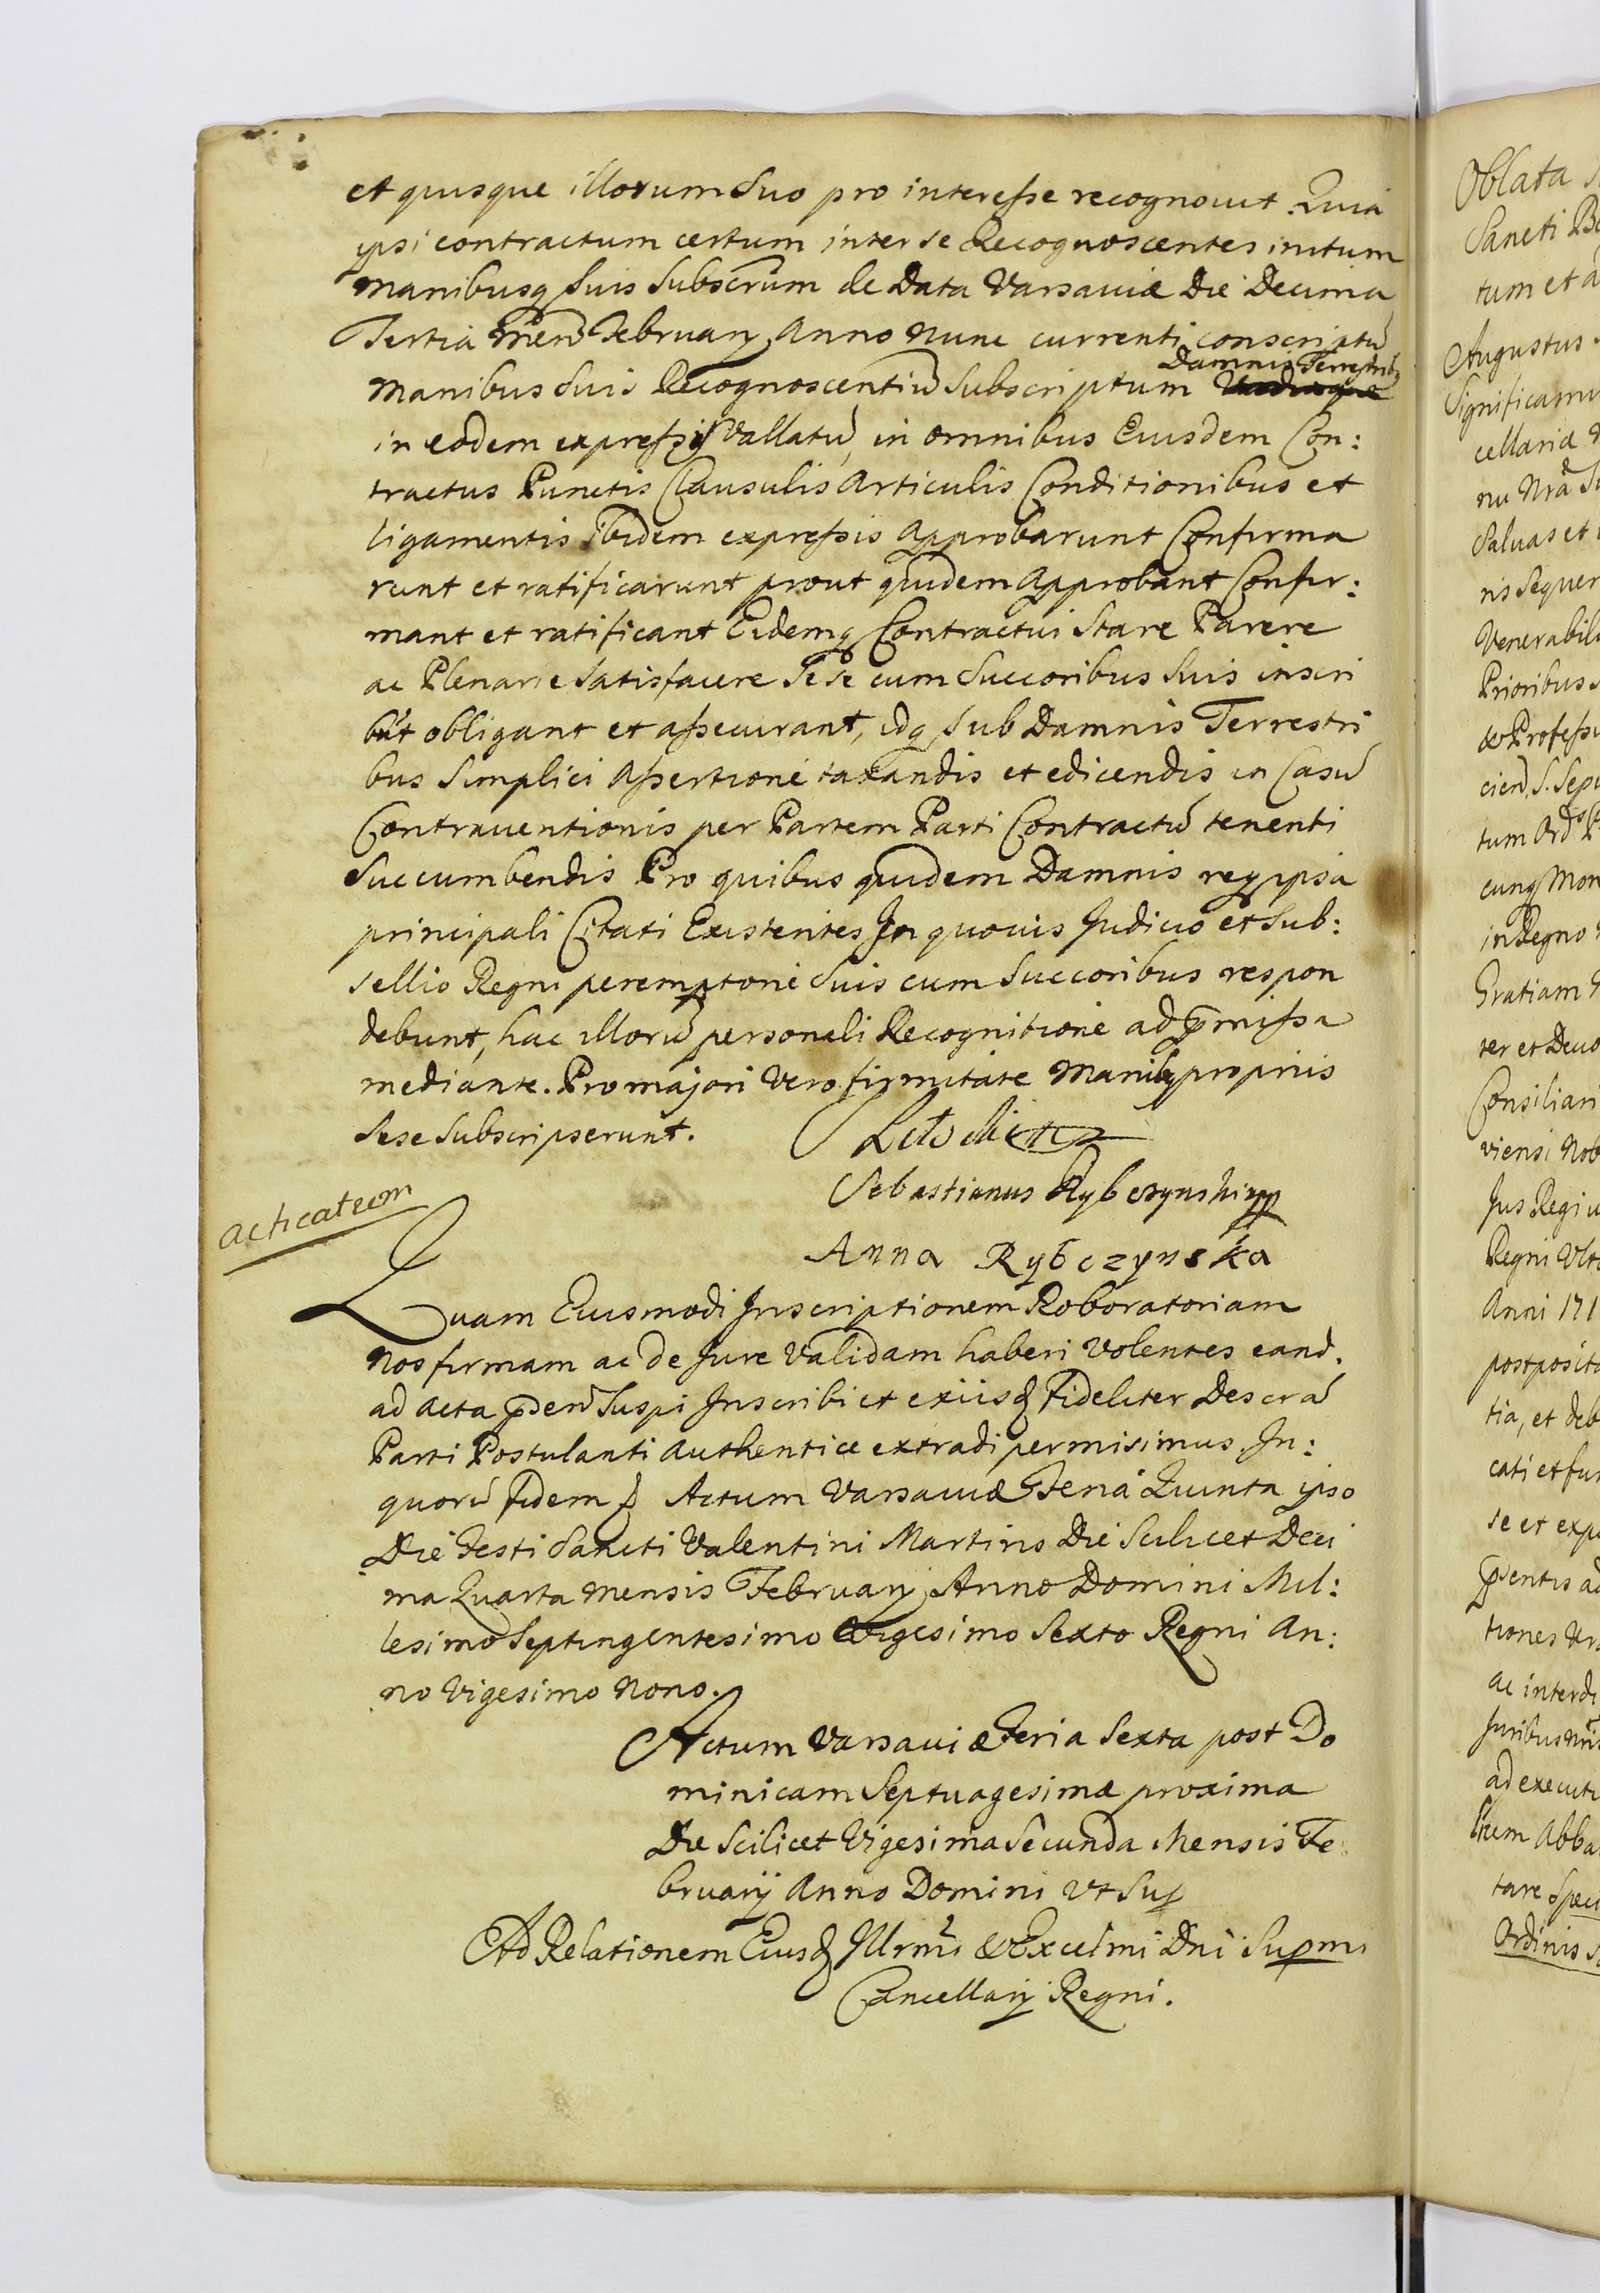 et quisque illorum Suo pro interesse recognovit. Quia
ipsi contractum certum inter se Recognoscentes initum
manibusq suis Subscrûm de Data Varsaviæ Die Decima
Tertia Men̄ Februarij Anno nunc currenti conscriptū
Damnis Terrestribq
Manibus Suis Recognoscentiū Subscriptum
in eodem expressis Vallatū, in omnibus Eiusdem Con:
tractus Punctis Clausulis Articulis Conditionibus et
ligamentis ibidem expressis Approbarunt Confirma
runt et ratificarunt prout quidem Approbant Confir:
mant et ratificant Eidemq Contractui Stare Parere
ac Plenarie Satisfacere Sese cum Succoribus Suis inscri
būt obligant et assecurant, idq sub Damnis Terrestri
bus Simplici Assertione taxandis et edicendis in Casū
Contraventionis per Partem Parti Contractū tenenti
Succumbendis Pro quibus quidem Damnis reqq ipsa
principali Citati Existentes In quovis Judicio et Sub:
sellio Regni peremptorie Suis cum Succoribus respon
debunt, hac illorū personali Recognitione ad p̄missa
mediante. Pro majori vero firmitate Manibq propriis
Sese Subscripserunt.
Sebastianus Rybczynski mpp
Anna Rybczynska
acticatcom
Quam Eiusmodi Inscriptionem Roboratoriam
nos firmam ac de Jure Validam haberi Volentes eand.
ad acta p̄den̄ Suspi Inscribi et exiisd Fideliter Descrā
Parti Postulanti Authentice extradi permisimus. In:
quorū fidem Actum Varsaviæ Feria Quinta ipso
Die Festi Sancti Valentini Martiris Die Scilicet Deci
ma Quarta mensis Februarij Anno Domini Mil:
lesimo Septingentesimo Vigesimo Sexto Regni An:
no Vigesimo Nono.
Actum Varsaviæ Feria Sexta post Do
minicam Septuagesimæ proxima
Die Scilicet Vigesima Secunda Mensis Fe
bruarij Anno Domini Ut Sup
Ad Relationem Eiusd Illrmi & Excelmi Dni Supmi
Cancellarij Regni.
Oblata
Sancti
tum et
Augustus
cellaria
nu Nrā
Salvas et
Prioribus
tum Ord
in Regno
Gratiam
ter et Devo
Consiliari
viensi Nob
Jus Regiu
Regni
Anni 171
postposit
tia, et deb
cati et fu
se et exp
p̄sentis ad
tiones
ac interdi
Juribus
ad execut
Abba
tare Spec
Ordinis